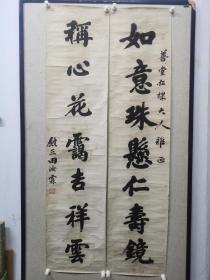 善堂仁棣大人雅正
如意珠懸仁壽鏡
稱心花靄吉祥雲
田海霖